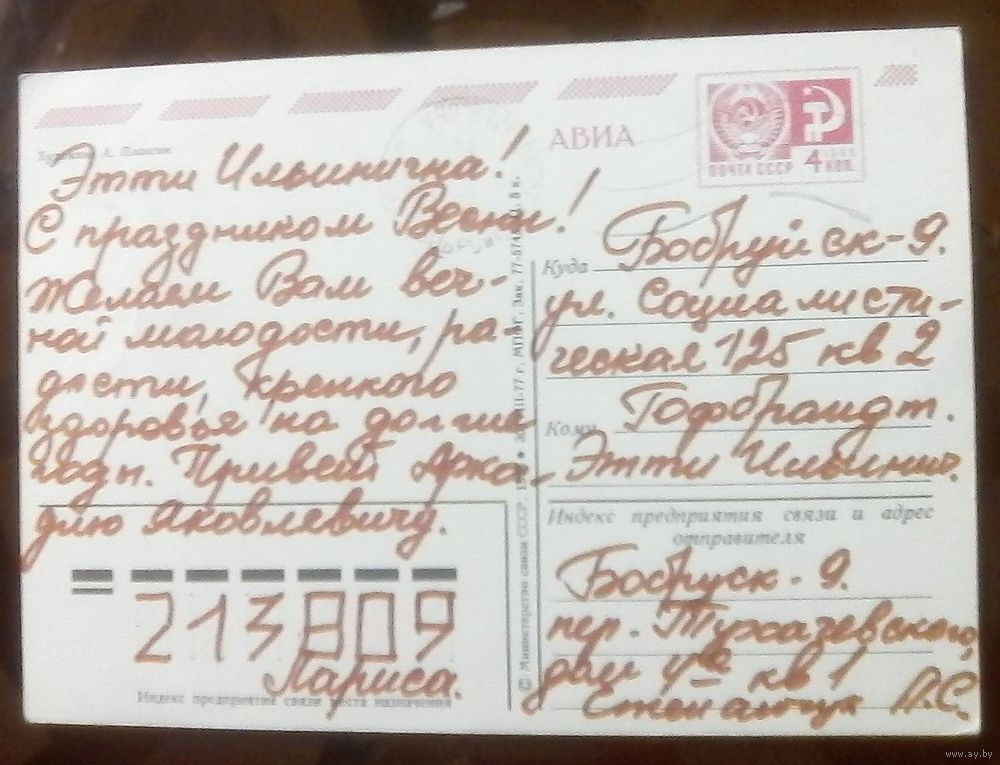 АВИА
ПОЧТА СССР
4 КОП
Художник А. Плаксин
Этти Ильинична!
С праздником Весны!
Желаем Вам веч-
ной молодости, ра-
дости, крепкого
здоровья на долгие
годы. Привет Арка-
дию Яковлевичу.
Лариса.
213809
Индекс предприятия связи места назначения
© Министерство связи СССР
Куда Бобруйск-9.
ул. Социалисти-
ческая 125 кв 2
Кому Гофбрандт.
Этти Ильинич.
Индекс предприятия связи и адрес
отправителя
Бобруск-9.
пер. Тухачевского,
дом кв 1
Л.С.
www.ay.by